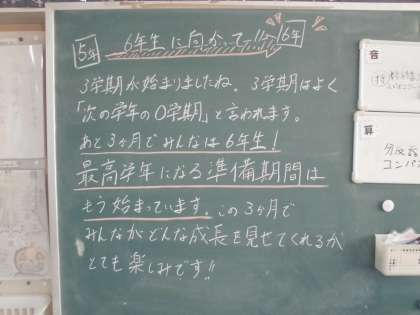 5年 6年生に向かって 6年
3学期が始まりましたね。3学期はよく
「次の学年の0学期」と言われます。
あと3ヶ月でみんなは6年生!
最高学年になる準備期間は
もう始まっています。この3ヶ月で
みんながどんな成長を見せてくれるか
とても楽しみです!!
音
算
コンパス